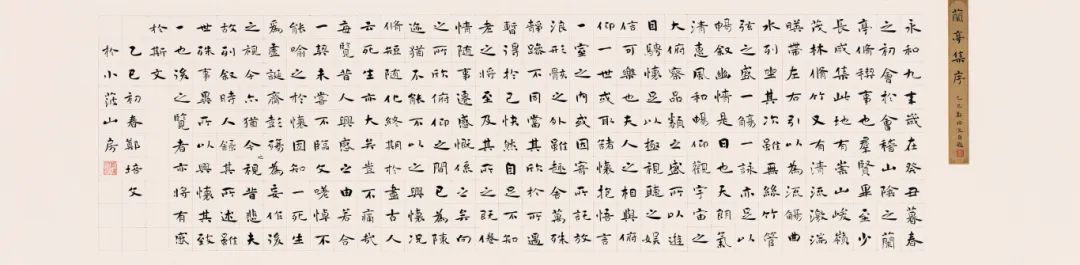 蘭亭集序
乙巳鄭培文自題
永和九年歲在癸丑暮春
之初會於會稽山陰之蘭
亭脩稧事也群賢畢至少
長咸集此地有崇山峻嶺
茂林脩竹又有清流激湍
暎帶左右引以為流觴曲
水列坐其次雖無絲竹管
弦之盛一觴一詠亦足以
暢叙幽情是日也天朗氣
清惠風和暢仰觀宇宙之
大俯察品類之盛所以遊
目騁懷足以極視聽之娛
信可樂也夫人之相與俯
仰一世或取諸懷抱悟言
一室之內或因寄所託放
浪形骸之外雖趣舍萬殊
靜躁不同當其欣於所遇
暫得於己快然自足不知
老之將至及其所之既倦
情隨事遷感慨係之矣向
之所欣俯仰之間已為陳
迹猶不能不以之興懷況
脩短隨化終期於盡古人
云死生亦大矣豈不痛哉
每覽昔人興感之由若合
一契未嘗不臨文嗟悼不
能喻之於懷固知一死生
為虛誕齊彭殤為妄作後
之視今亦由今之視昔悲夫
故列叙時人錄其所述雖
世殊事異所以興懷其致
一也後之覽者亦將有感
於斯文
乙巳初春鄭培文
於小山房